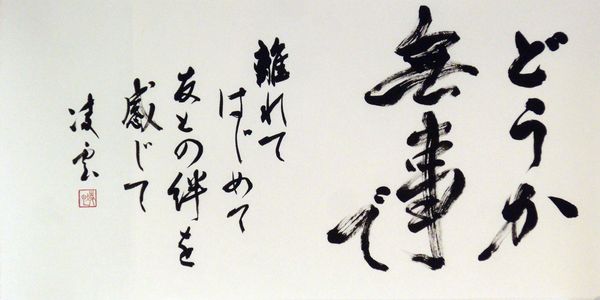 どうか
無事で
離れて
はじめて
友との絆を
感じて
凌雲